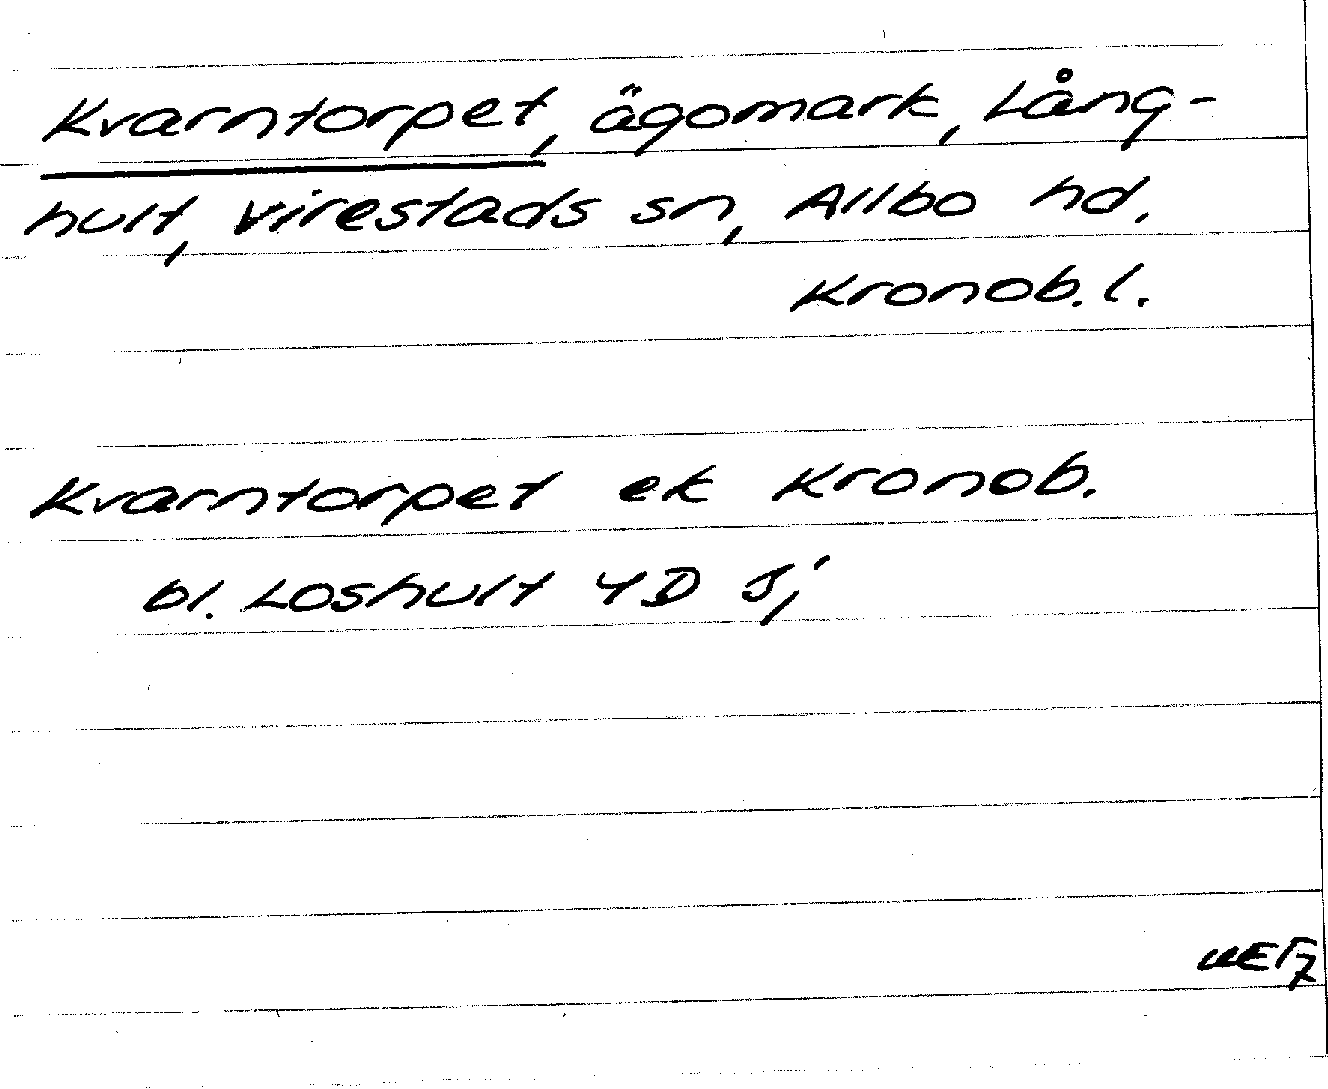 Kvarntorpet, ägomark, Lång-
hult, Virestads sn, Allbo hd.
Kronob. l.
Kvarntorpet ek Kronob.
bl. Loshult 4D